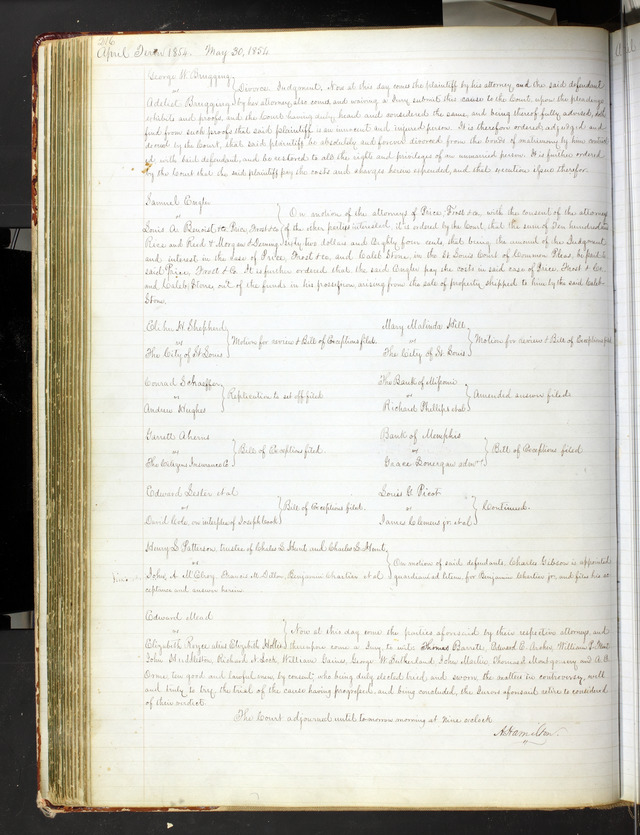 316
April Term 1854. May 30, 1854
George W. Brugging
vs
Divorce Judgment. Now at this day comes the plaintiff by his attorney, and the said defendant
by her attorney, also comes, and waiving a Jury submit this cause to the Court upon the pleadings
exhibits and proofs, and the Court having duly heard and considered the same, and being thereof fully advised, doth
find from such proofs that said plaintiff is an innocent and injured person. It is therefore ordered, adjudged and
decreed by the Court, that said plaintiff be absolutely and forever divorced from the bonds of matrimony by him contract
ed, with said defendant, and be restored to all the rights and privileges of an unmarried person. It is further ordered
by the Court that the said plaintiff pay the costs and charges herein expended, and that execution issue therefor.
Samuel Engler
vs
Louis A. Benoist & Co, Price, Frost & Co
Rice and Reed & Morgan &
On motion of the attorneys of Price, Frost & Co, with the consent of the attorneys
of the other parties interested, it is ordered by the Court, that the sum of Ten hundred and
sixty two dollars and Eighty four cents, that being the amount of the Judgment
and interest in the case of Price, Frost & Co, and Caleb Stone, in the St Louis Court of Common Pleas, be paid to
said Price, Frost & Co. It is further ordered that the said Engler pay the costs in said case of Price Frost & Co.
and Caleb Stone, out of the funds in his possession arising from the sale of property shipped to him by the said Caleb
Stone.
H. Shepherd
vs
The City of St Louis
Motion for review & Bill of Exceptions filed.
Mary Malinda Hill
vs
The City of St Louis
Motion for review & Bill of Exceptions filed
Conrad Schaeffer
vs
Andrew Hughes
Replication to set off filed
The Bank of Missouri
vs
Richard Phillips et al
Amended answer filed
Garrett Aherns
vs
The Citizens Insurance Co
Bill of Exceptions filed.
Bank of Memphis
vs
Grace Donegan adm
Bill of Exceptions filed
Edward Lester et al
vs
David Cole, an interplea of Joseph
Bill of Exceptions filed.
Louis G. Picot
vs
James Clemens jr. et al
Continued.
Henry L. Patterson, trustee of Charles L. Hunt and Charles L. Hunt,
vs
John A. McElroy, Francis M. Dillon, Benjamin Charlier et al
On motion of said defendants, Charles Gibson is appointed
guardian ad litem for Benjamin Charlier jr. and files his ac
ceptance and answer herein
Edward Mead
vs
Elizabeth Royce alias Elizabeth Holton
Now at this day come the parties aforesaid by their respective attorneys, and
therefore come a Jury to wit: Thomas Barrett, Edward C. Archer, William P.
John Huddleston, Richard J. Lock, William Gaines, George W. Sutherland, John Martin, Thomas L. Montgomery and A. B.
Orme, ten good and lawful men, by consent, who being duly elected tried and sworn, the matters in controversy, well
and truly to try, the trial of the cause having progressed, and being concluded, the Jurors aforesaid retire to considered
of their verdict.
The Court adjourned until tomorrow morning at Nine o'clock
A. Hamilton.